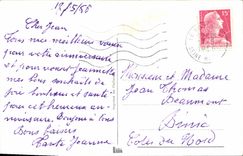 12/5/56
Cher Jean
Tous mes meilleurs vœux
pour votre anniversaire
et pour vous Jeannette
mes bons souhaits de
joie bonheur et santé
pour cet heureux an-
niversaire. Bonjour à tous
Bons baisers
Jeanne
15F
Monsieur et Madame
Jean Thomas
Beaumont
Binic
Côtes du Nord